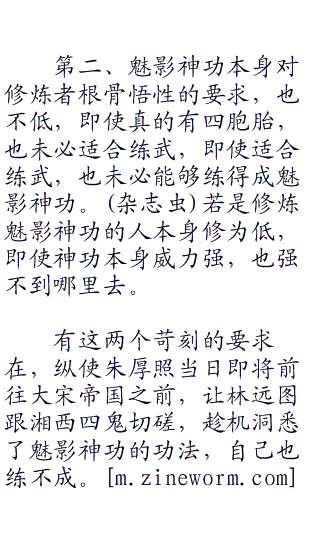 第二、魅影神功本身对
修炼者根骨悟性的要求，也
不低，即使真的有四胞胎，
也未必适合练武，即使适合
练武，也未必能够练得成魅
影神功。(杂志虫)若是修炼
魅影神功的人本身修为低，
即使神功本身威力强，也强
不到哪里去。
有这两个苛刻的要求
在，纵使朱厚照当日即将前
往大宋帝国之前，让林远图
跟湘西四鬼切磋，趁机洞悉
了魅影神功的功法，自己也
练不成。[m.zineworm.com]